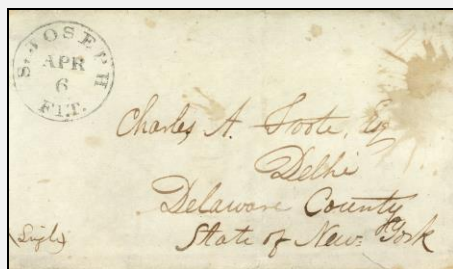 St. JOSEPH
APR
6
Fl.T.
Charles A. Foote, Esq
Delhi
Delaware County
State of New York
(Single)